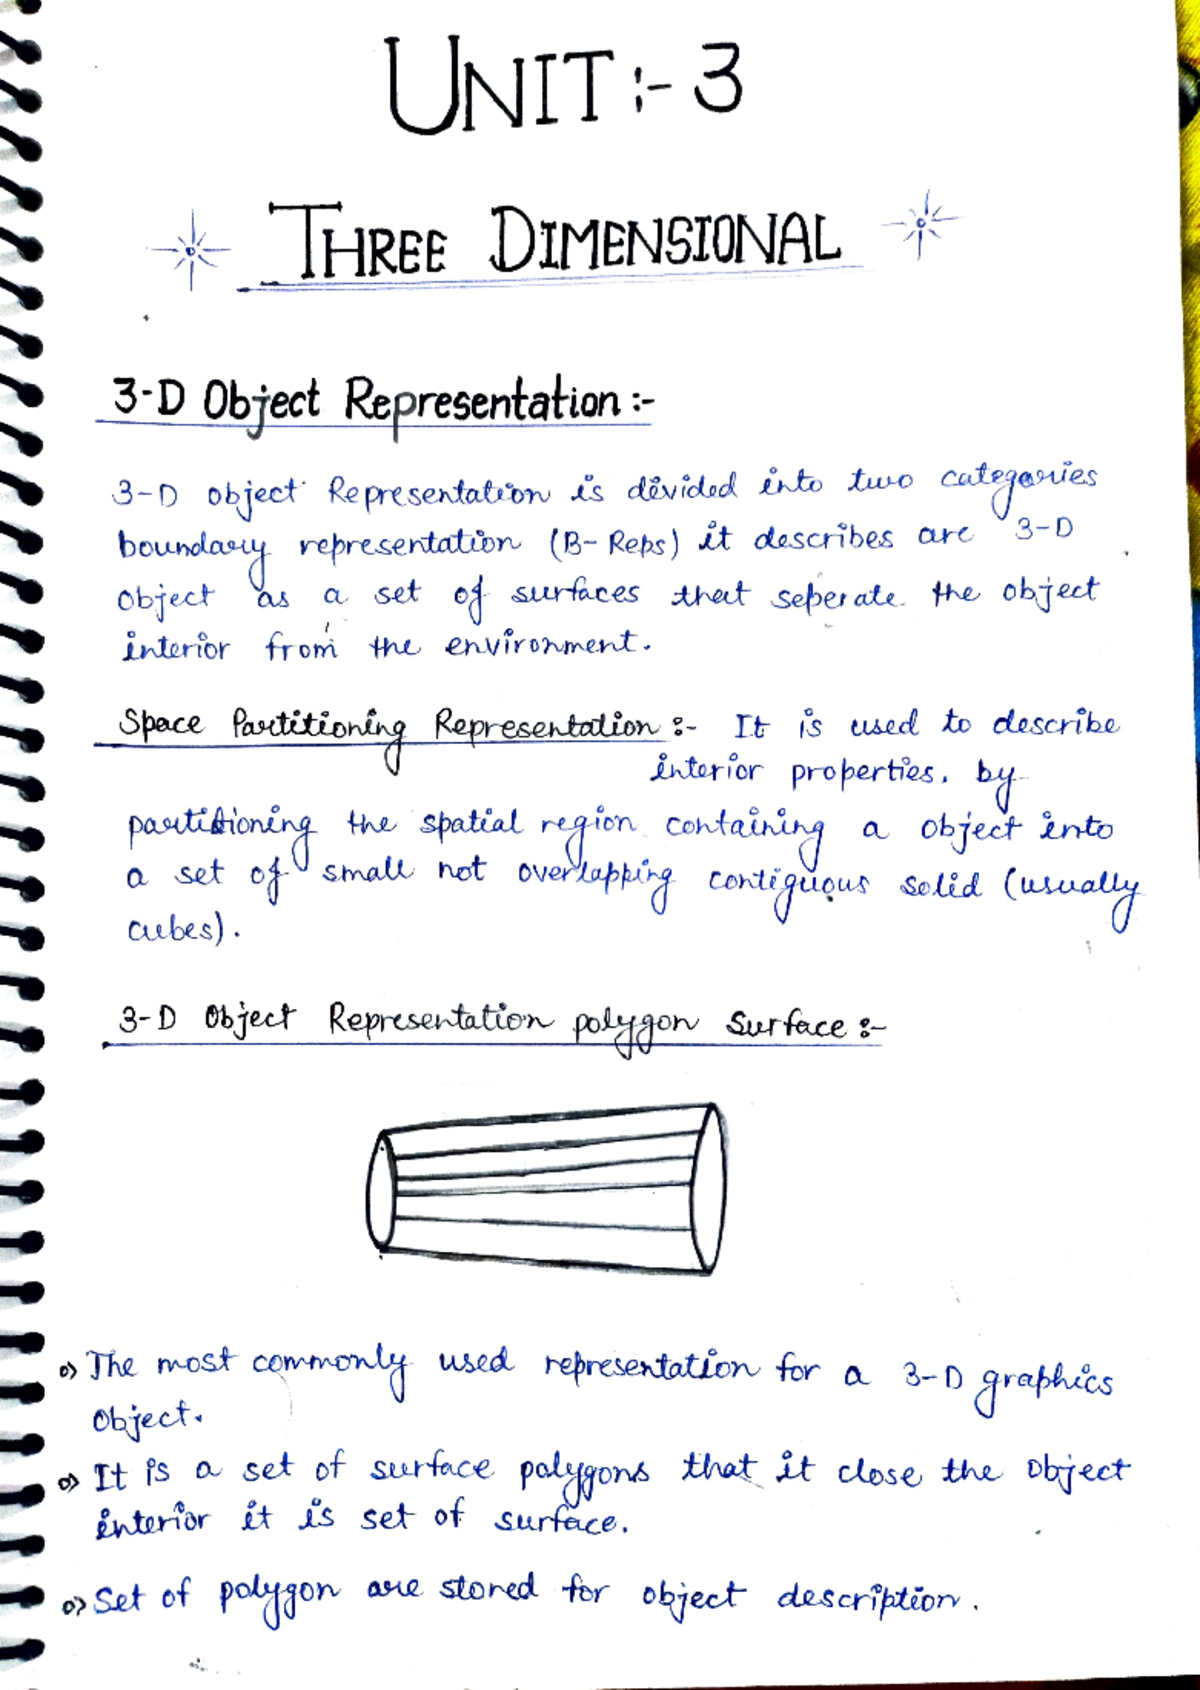 UNIT :- 3
THREE DIMENSIONAL
3-D Object Representation :-
3-D object Representation is divided into two categories
boundary representation (B- Reps) it describes are 3-D
object as a set of surfaces that seperate the object
interior from the environment.
Space Partitioning Representation :- It is used to describe
interior properties. by
partitioning the spatial region containing a object into
a set of small not overlapping contiguous solid (usually
cubes).
3-D Object Representation polygon Surface :-
The most commonly used representation for a 3-D graphics
object.
It is a set of surface polygons that it close the object
interior it is set of surface.
Set of polygon are stored for object description.